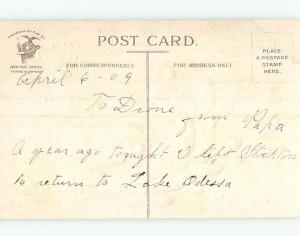 POST CARD.
FOR CORRESPONDENCE
FOR ADDRESS ONLY
PLACE
A POSTAGE
STAMP
HERE.
April 6-09
To Dione
from Papa
A year ago tonight I left Stockton
to return to Lake Odessa